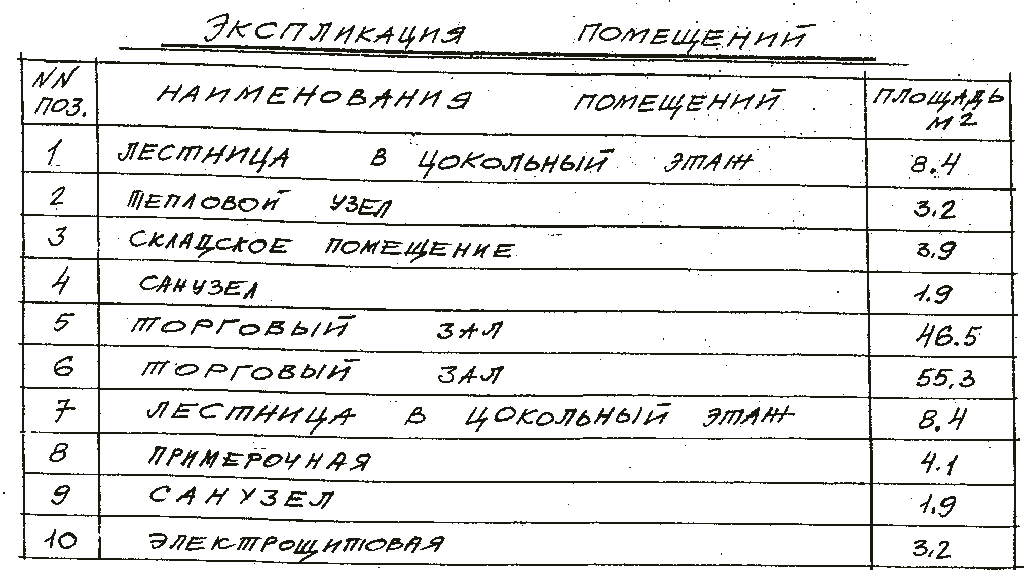 ЭКСПЛИКАЦИЯ ПОМЕЩЕНИЙ
NN ПОЗ. НАИМЕНОВАНИЯ ПОМЕЩЕНИЙ ПЛОЩАДЬ М2
1 ЛЕСТНИЦА В ЦОКОЛЬНЫЙ ЭТАЖ 8.4
2 ТЕПЛОВОЙ УЗЕЛ 3.2
3 СКЛАДСКОЕ ПОМЕЩЕНИЕ 3.9
4 САНУЗЕЛ 1.9
5 ТОРГОВЫЙ ЗАЛ 46.5
6 ТОРГОВЫЙ ЗАЛ 55.3
7 ЛЕСТНИЦА В ЦОКОЛЬНЫЙ ЭТАЖ 8.4
8 ПРИМЕРОЧНАЯ 4.1
9 САНУЗЕЛ 1.9
10 ЭЛЕКТРОЩИТОВАЯ 3.2